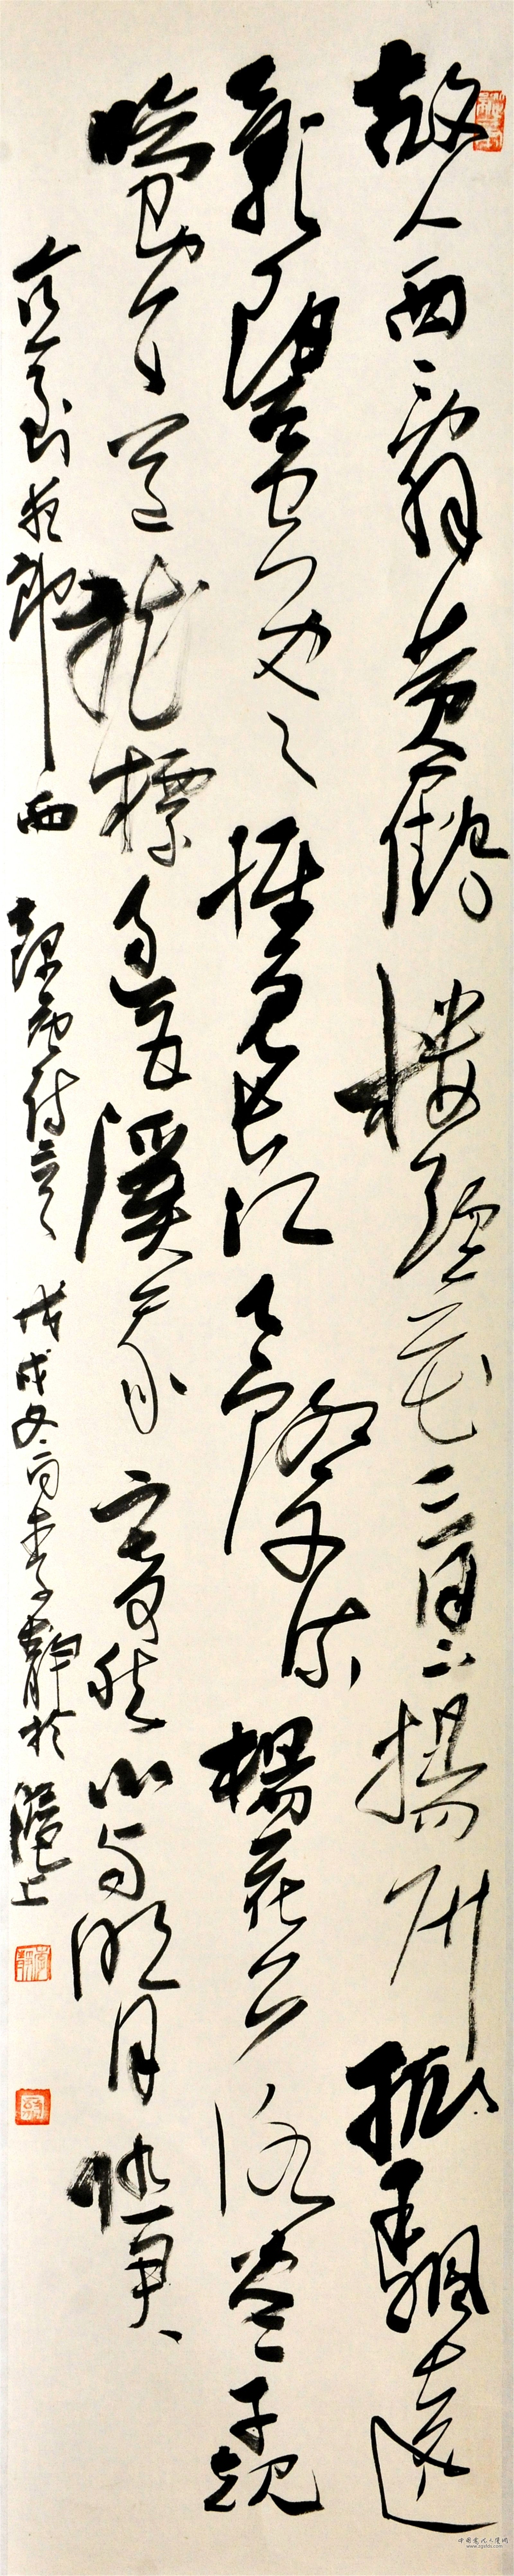 故人西辭黃鶴樓煙花三月下揚州孤帆遠
影碧空盡惟見長江天際流楊花落盡子規
啼聞道龍標過五溪我寄愁心與明月
直到夜郎西 戊戌冬月李靜於滬上
中国书法大系网